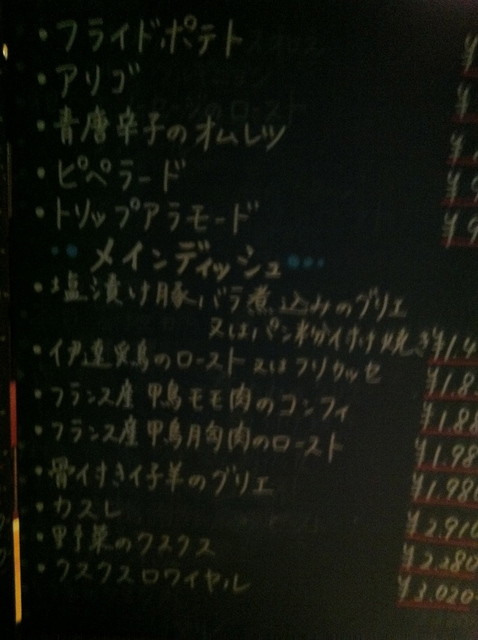 ・フライドポテト ¥
・アリゴ ¥
・青唐辛子のオムレツ ¥
・ピペラード ¥9
・トリップアラモード ¥9
メインディッシュ
・塩漬け豚バラ煮込みのグリエ
又はパン粉付け焼き ¥1.4
・伊達鶏のロースト又はフリカッセ ¥1.8
・フランス産鴨モモ肉のコンフィ ¥1.88
・フランス産鴨胸肉のロースト ¥1.98
・骨付き仔羊のグリエ ¥1.980
・カスレ ¥2.910
・野菜のクスクス ¥2.280
・クスクスロワイヤル ¥3.020